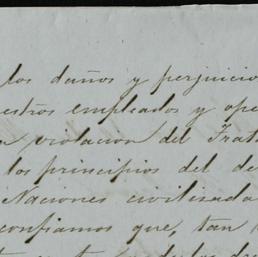 los daños y perjuicio
estros empleados y ope
violacion del Trata
los principios del de
Naciones civilizada
confiamos que, tan